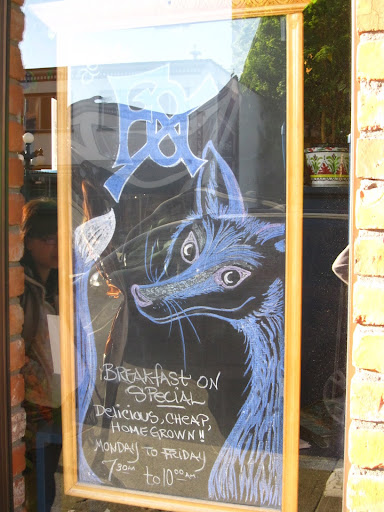 BREAKFAST ON
SPECIAL
Delicious, CHEAP,
HOMEGROWN!!
MONDAY to FRIDAY
7 30AM to 10 00AM